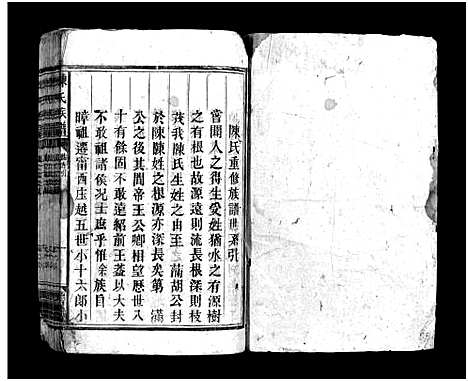 陳氏重修族譜世系引
嘗聞人之得生受姓猶水之有源樹
之有根也故源遠則流長根深則枝
茂我陳氏生姓之由王 滿胡公封
於陳陳姓之根源亦深長矣第 滿
公之後其間帝王公卿相望歷世八
十有餘固不敢遠紹前王蓋以大夫
不敢祖諸侯況士庶乎惟余族自
暐祖遷甯西庄越五世小十太郎小
陳氏族譜